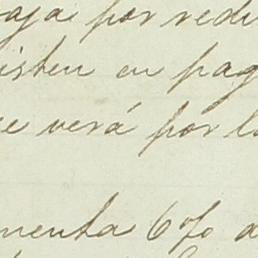 aja por redu
isten en pag
se verá por lo
menta 6% a